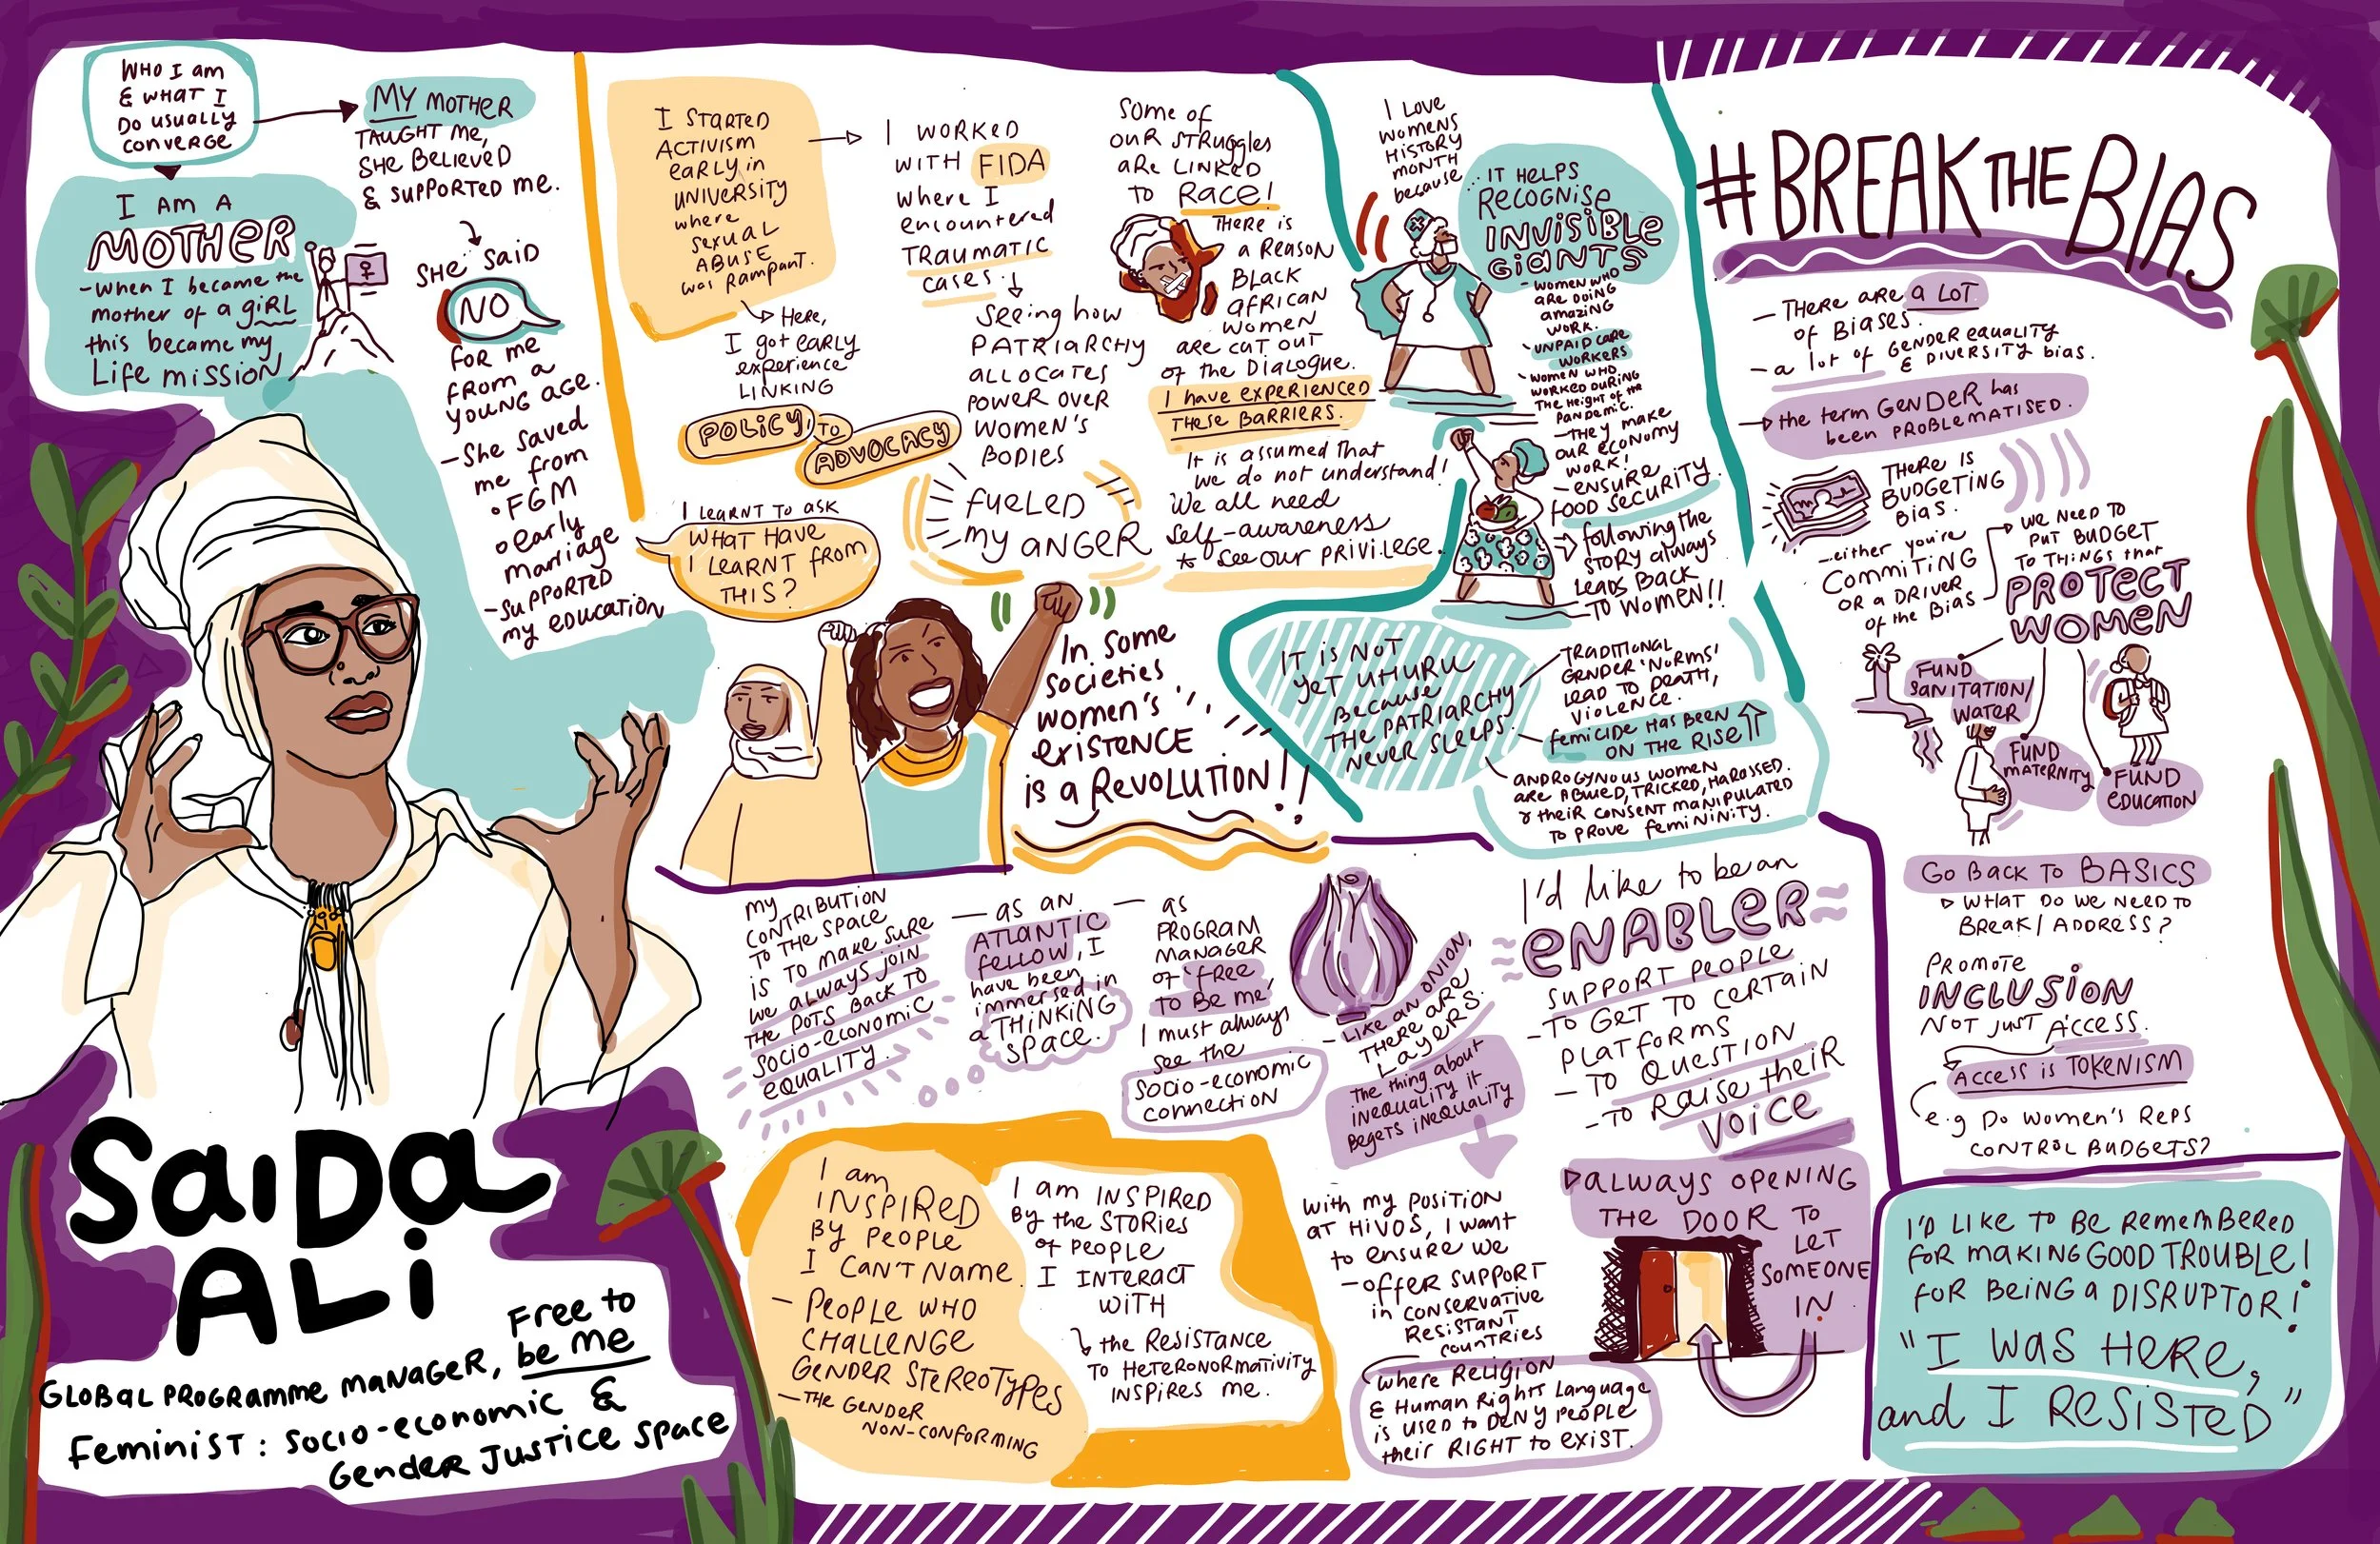 WHO I am
& WHAT I
DO USUALLY
CONVERGE
I AM A
MOTHER
- when I became the
mother of a giRL
this became my
Life mission
MY MOTHER
TAUGHT me,
SHE BELIEVED
& SUPPORTED me.
SHE SAID
NO
FOR me
FROM a
YOUNG AGE.
- She saved
me from
• FGM
• early
marriage
- SUPPORTED
my EDUCATION
SaiDa
ALi
GLOBAL PROGRAMME MANAGER, Free to
be me
Feminist: SOCIO-economic &
Gender JUSTICE Space
I STARTED
ACTIVISM
early in
UNIVERSITY
where
sexual
ABUSE
was Rampant.
Here,
I got early
experience
LINKING
POLICY TO
ADVOCACY
I LEARNT TO ASK
WHAT HAVE
I LEARNT from
THIS?
I WORKED
WITH FIDA
where I
encountered
TRAUMATIC
cases.
Seeing how
PATRIARCHY
ALLOCATES
POWER OVER
WOMEN'S
BODIES
FUELED
my ANGER
Some of
OUR STRUggles
aRe LINKED
TO RACE!
THERE IS
a REASON
BLACK
AFRICAN
WOMEN
are CUT OUT
of the DIALOGUE.
I have experienced
THESE BARRIERS.
It is assumed That
we do not understand!
We all need
Self-awareness
* See our PRIVILEGE.
In some
societies
women's
existence
is a Revolution!!
I Love
womens
HISTORY
MONTH
because
... IT HELPS
Recognise
INVISIBLE
GIANTS
- WOMEN WHO
are DOING
amazing
WORK.
- UNPAID CARE
WORKERS
- WOMEN WHO
WORKED DURING
THE Height of the
pandemic.
- THEY make
OUR ECONOMY
WORK!
- ENSURE
FOOD SECURITY.
following the
STORY always
LEADS BACK
TO WOMEN!!
IT is NOT
yeT UHURU
Because
THE PATRIARCHY
NEVER SLEEPS.
TRADITIONAL
GENDER 'NORMS'
LEAD TO DEATH,
VIOLENCE.
FEMICIDE HAS BEEN
ON THE RISE
ANDROGYNOUS WOMEN
ARE ABUSED, TRICKED, HARASSED.
& their CONSENT MANIPULATED
TO PROVE FEMININITY.
#BREAK THE BIAS
- THERE ARE a LOT
of BIASES.
- a lot of GENDER EQUALITY
& DIVERSITY bias.
the term GENDER has
been PROBLEMATISED.
THERE IS
BUDGETING
BIAS.
- either you're
COMMITING
OR a DRIVER
of the Bias
WE NEED TO
PUT BUDGET
TO THINGS that
PROTECT
WOMEN
FUND
SANITATION/
WATER
FUND
MATERNITY
FUND
EDUCATION
GO BACK TO BASICS
WHAT DO WE NEED TO
BREAK/ADDRESS?
PROMOTE
INCLUSION
NOT JUST ACCESS.
ACCESS is TOKENISM
e.g DO WOMEN'S REPS
CONTROL BUDGETS?
my
CONTRIBUTION
TO THE SPACE
IS TO MAKE SURE
WE ALWAYS JOIN
THE DOTS BACK TO
SOCIO-ECONOMIC
EQUALITY.
- as an
ATLANTIC
fellow, I
have been
immersed in
a THINKING
SPACE.
- as
PROGRAM
MANAGER
of 'free
TO Be me'
I must always
see the
SOCIO-economic
connection
- LIKE AN ONION,
THERE ARE
LAYERS.
The thing about
inequality it
Begets inequality
I'd like to be an
ENABLER
SUPPORT PEOPLE
- TO GET TO CERTAIN
PLATFORMS
- TO QUESTION
- TO RAISE their
VOICE
ALWAYS OPENING
THE DOOR TO
LET
SOMEONE
IN
I am
INSPIRED
BY PEOPLE
I CAN'T Name.
- PEOPLE WHO
CHALLENGE
GENDER STEREOTYPES
- THE GENDER
NON-CONFORMING
I am INSPIRED
By the STORies
of PEOPLE
I INTERACT
WITH
the Resistance
TO HETERONORMATIVITY
INSPIRES ME.
With my POSITION
AT HIVOS, I want
to ensure we
- OFFER SUPPORT
in CONSERVATIVE
RESISTANT
COUNTRIES
where Religion
& Human Rights Language
is used to DENY PEOPLE
their RIGHT to EXIST.
I'D LIKE TO BE REMEMBERED
for making GOOD TROUBLE!
for BEING A DISRUPTOR!
"I WAS HERE,
and I RESISTED"